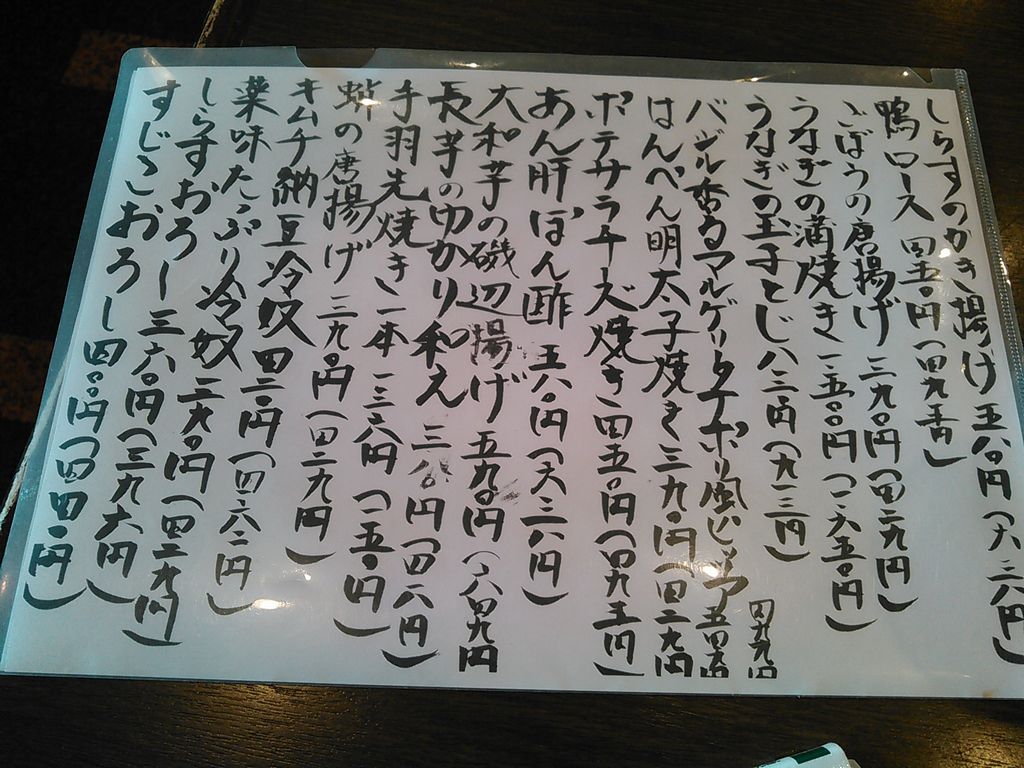 しらすのかき揚げ 五八〇円(六三八円)
鴨ロース 四五〇円(四九五円)
ごぼうの唐揚げ 三九〇円(四二九円)
うなぎの蒲焼き 一五〇〇円(一六五〇円)
うなぎの玉子とじ 八三〇円(九一三円)
バジル香るマルゲリータナポリ風ピッツァ 四九九円
はんぺん明太子焼き 三九〇円(四二九円
ポテサラチーズ焼き 四五〇円(四九五円)
あん肝ぽん酢 五八〇円(六三八円)
大和芋の磯辺揚げ 五九〇円(六四九円
長芋のゆかり和え 三八〇円(四一八円)
手羽先焼き一本 (一五〇円)
蛸の唐揚げ 三九〇円(四二九円)
キムチ納豆冷奴 四二〇円(四六二円)
薬味たぷり冷奴 三九〇円(四二九円)
しらすおろし 三六〇円(三九六円)
すじこおろし 四〇〇円(四四〇円)